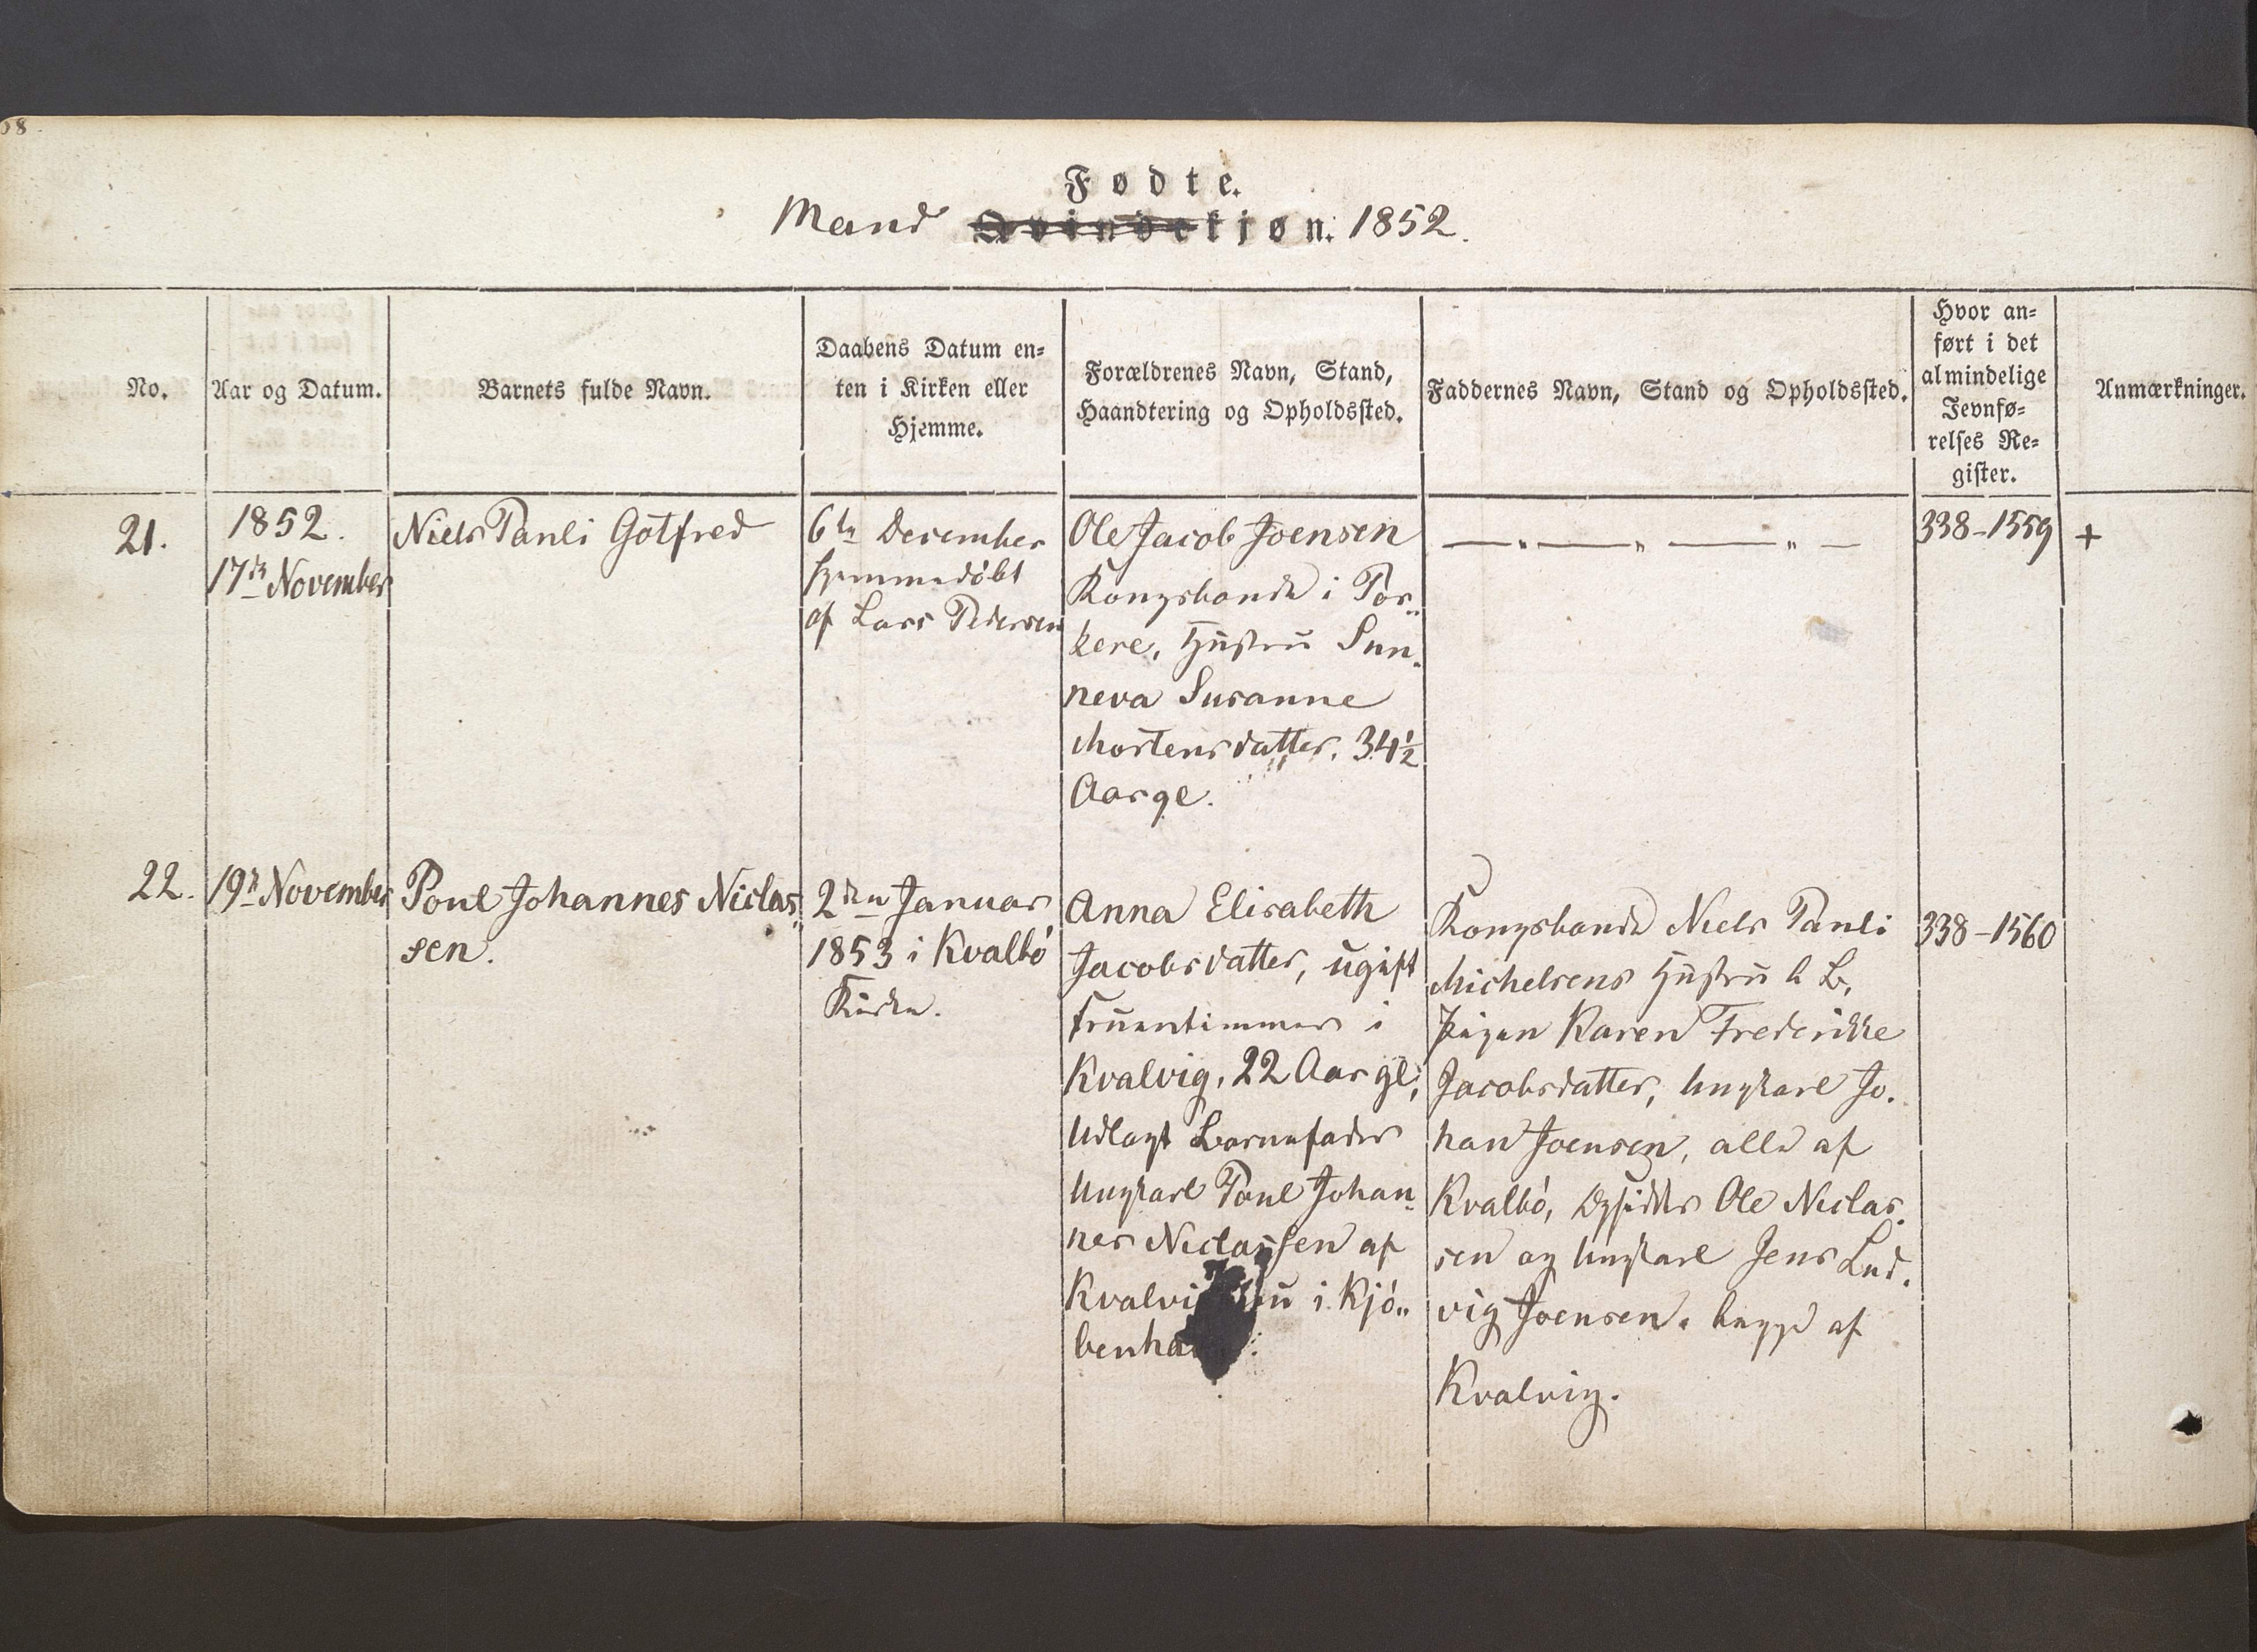 Fødte.
Mand Qvindekjøn. 1852.
No.
Aar og Datum.
Barnets fulde Navn.
Daabens Datum en=
ten i Kirken eller
Hjemme.
Forældrenes Navn, Stand,
Haandtering og Opholdssted.
Faddernes Navn, Stand og Opholdssted.
Hvor an=
ført i det
almindelige
Jevnfø=
relses Re=
gister.
Anmærkninger.
21.
1852.
17de November
Niels Pauli Gotfred
6te December
hjemmedöbt
af Lars Pedersen
Ole Jacob Joensen
Kongsbonde i Por„
kere, Hustru Sun„
neva Susanne
Mortensdatter. 34½
Aar gl.
— „ — „ — „ —
338-1559
+
22.
19de November
Poul Johannes Niclas„
sen.
2den Januar
1853 i Kvalbö
Kirke.
Anna Elisabeth
Jacobsdatter, ugift
Fruentimmer i
Kvalvig, 22 Aar gl;
Udlagt Barnefader
Ungkarl Poul Johan„
nes Niclassen af
Kvalvi nu i Kjö„
benha
Kongsbonde Niels Pauli
Michelsens Hustru b B,
Pigen Karen Frederikke
Jacobsdatter, Ungkarl Jo„
han Joensen, alle af
Kvalbö, Opsidder Ole Niclas„
sen og Ungkarl Jens Lud„
vig Joensen. begge af
Kvalvig.
338-1560